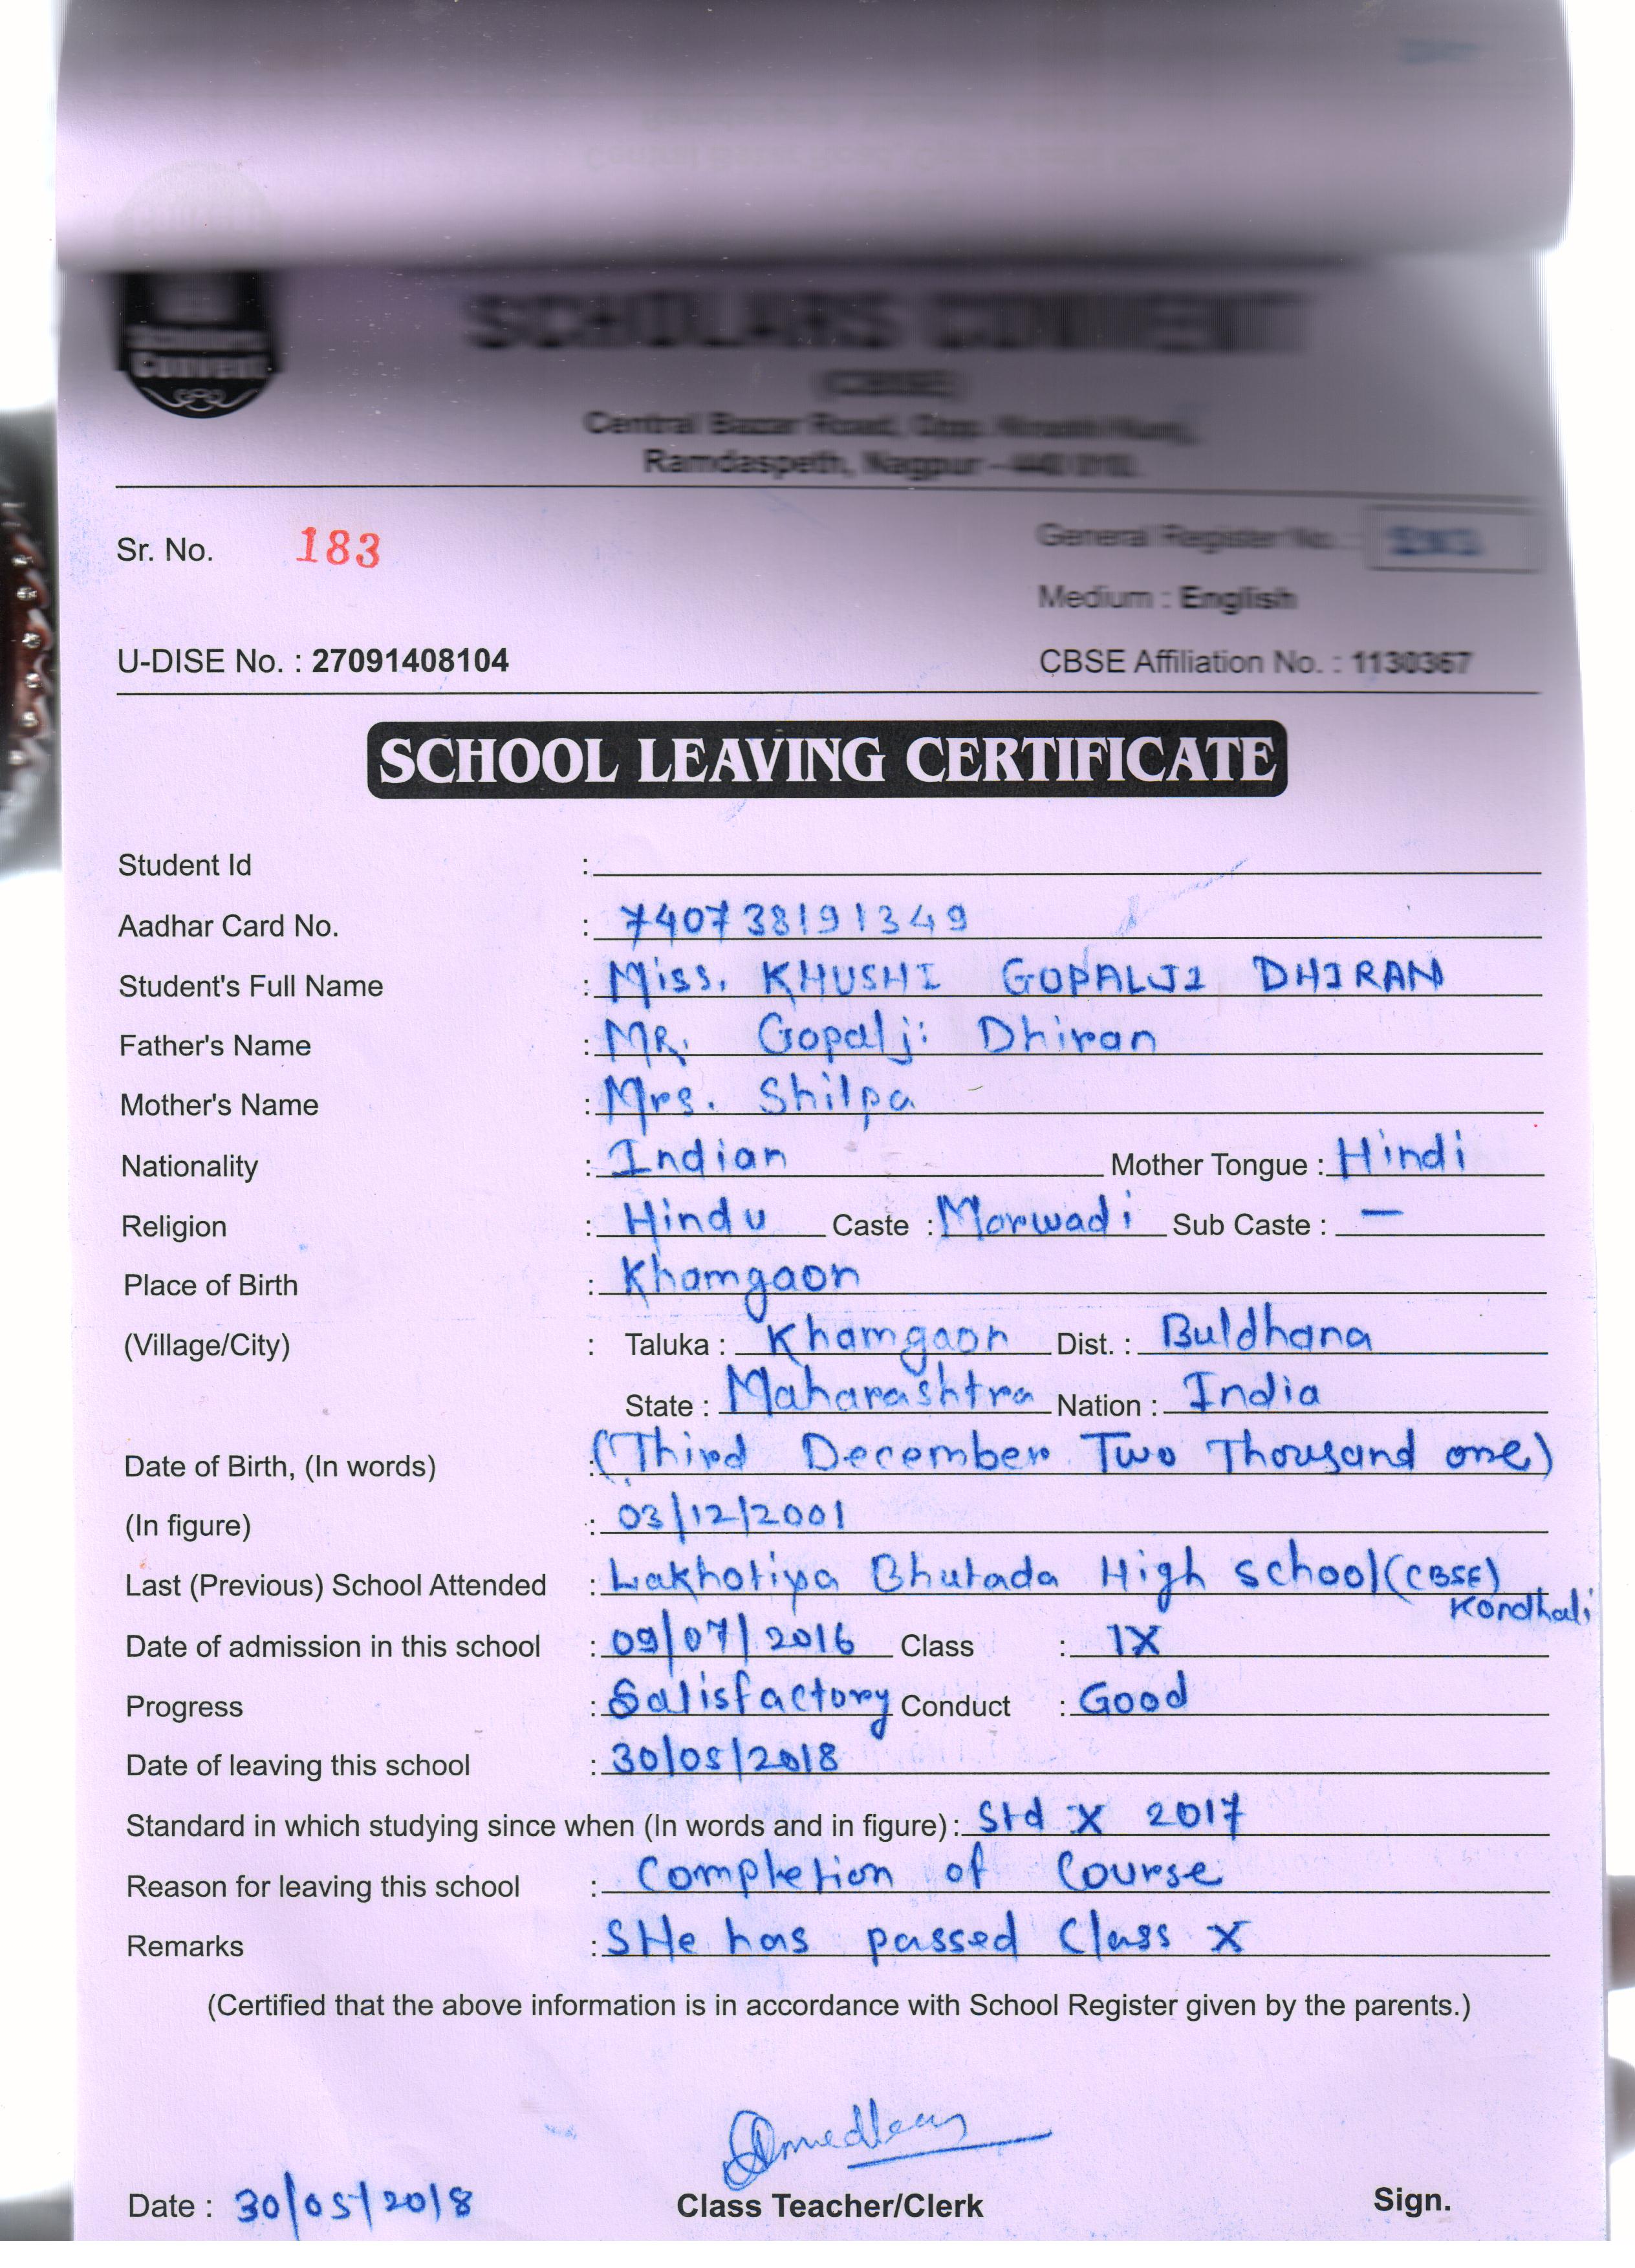 Scholars
Convent
SCHOLARS CONVENT
(CBSE)
Central Bazar Road, Opp.
Ramdaspeth, Nagpur - 440 010.
Sr. No. 183
General Register No. :
Medium : English
U-DISE No. : 27091408104
CBSE Affiliation No. : 1130367
SCHOOL LEAVING CERTIFICATE
Student Id :
Aadhar Card No. : 740738191349
Student's Full Name : Miss. KHUSHI GOPALJI DHIRAN
Father's Name : MR. Gopalji Dhiran
Mother's Name : Mrs. Shilpa
Nationality : Indian Mother Tongue : Hindi
Religion : Hindu Caste : Marwadi Sub Caste : —
Place of Birth : Khamgaon
(Village/City) : Taluka : Khamgaon Dist. : Buldhana
State : Maharashtra Nation : India
Date of Birth, (In words) : (Third December Two Thousand one)
(In figure) : 03/12/2001
Last (Previous) School Attended : Lakhotiya Bhutada High school (CBSE)
Kondhali
Date of admission in this school : 09/07/2016 Class : IX
Progress : Satisfactory Conduct : Good
Date of leaving this school : 30/05/2018
Standard in which studying since when (In words and in figure) : Std X 2017
Reason for leaving this school : Completion of Course
Remarks : SHe has passed Class X
(Certified that the above information is in accordance with School Register given by the parents.)
Date : 30/05/2018 Class Teacher/Clerk Sign.